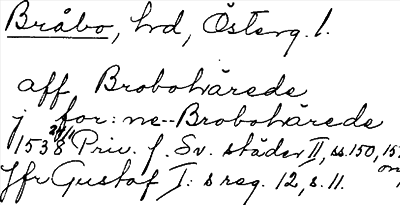 Bråbo, hrd, Österg. l.
aff Brobohärede
j for:ne Brobohärede
1538 29/11 Priv. f. Sv. städer II, ss. 150, 15
Jfr Gustaf I:s reg. 12, s. 11.